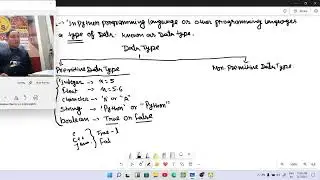 → In Python programming language or other programming languages
a type of Data known as Data type.
Data Type
Premitive Data Type
Non Premitive Data Type
Integer → x = 5
Float → x = 5.6
character → 'A' or "A"
String → 'Python' or "Python"
boolean → True or False
C
C++
Java
True - 1
Fal